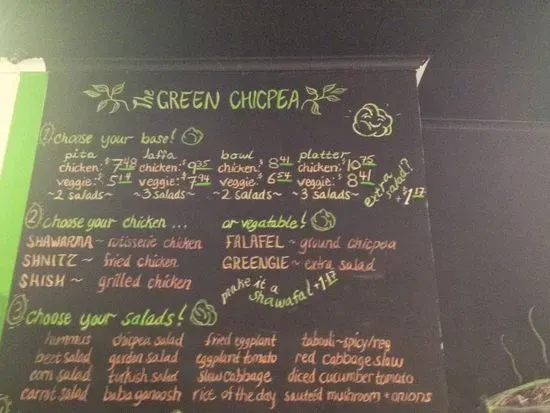 The GREEN CHICPEA
1 choose your base!
pita laffa bowl platter
chicken: $7.48 chicken: $9.35 chicken: $8.41 chicken: $10.75
veggie: $5.14 veggie: $7.94 veggie: $6.54 veggie: $8.41
~2 salads~ ~3 salads~ ~2 salads~ ~3 salads~
extra salad? +$1.17
2 choose your chicken ... or vegatable!
SHAWARMA ~ rotisserie chicken FALAFEL ~ ground chicpea
SHNITZ ~ fried chicken GREENGIE ~ extra salad
SHISH ~ grilled chicken make it a shawafal +1.17
3 choose your salads!
hummus chicpea salad fried eggplant tabouli~spicy/reg
beet salad garden salad eggplant tomato red cabbage slaw
corn salad turkish salad slaw cabbage diced cucumber tomato
carrot salad baba ganoosh rice of the day sauteéd mushroom + onions